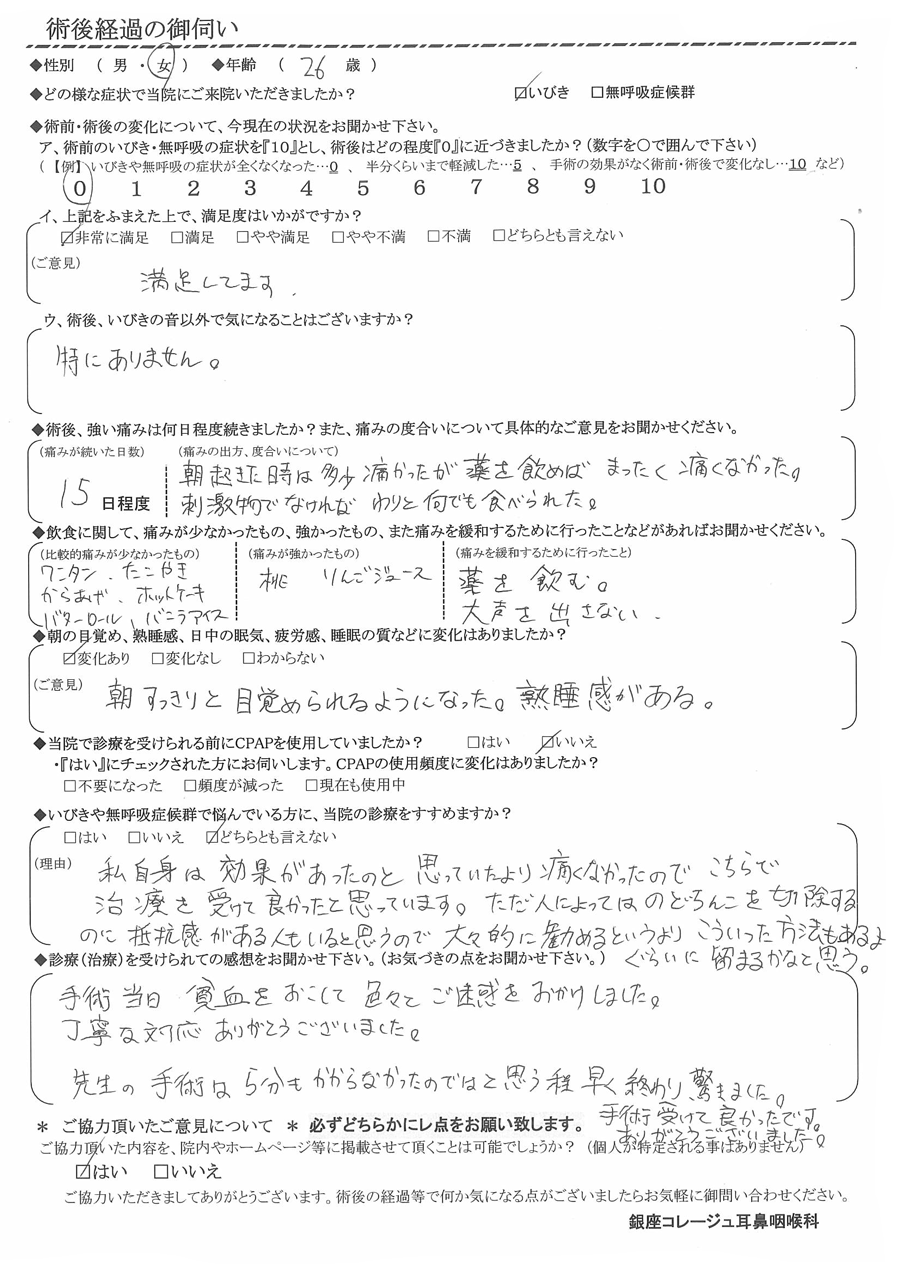 術後経過の御伺い
◆性別 （ 男 ・ 女 ） ◆年齢 （ 26 歳 ）
◆どの様な症状で当院にご来院いただきましたか？ ☑いびき □無呼吸症候群
◆術前・術後の変化について、今現在の状況をお聞かせ下さい。
ア、術前のいびき・無呼吸の症状を『10』とし、術後はどの程度『0』に近づきましたか？（数字を○で囲んで下さい）
（【例】いびきや無呼吸の症状が全くなくなった…0 、 半分くらいまで軽減した…5 、 手術の効果がなく術前・術後で変化なし…10 など）
0 1 2 3 4 5 6 7 8 9 10
イ、上記をふまえた上で、満足度はいかがですか？
☑非常に満足 □満足 □やや満足 □やや不満 □不満 □どちらとも言えない
（ご意見）
満足してます.
ウ、術後、いびきの音以外で気になることはございますか？
特にありません。
◆術後、強い痛みは何日程度続きましたか？また、痛みの度合いについて具体的なご意見をお聞かせください。
（痛みが続いた日数） （痛みの出方、度合いについて）
朝起きた時は多少痛かったが薬を飲めば まったく痛くなかった。
15 日程度 刺激物でなければ わりと何でも食べられた。
◆飲食に関して、痛みが少なかったもの、強かったもの、また痛みを緩和するために行ったことなどがあればお聞かせください。
（比較的痛みが少なかったもの） （痛みが強かったもの） （痛みを緩和するために行ったこと）
ワンタン、たこやき 桃 りんごジュース 薬を飲む。
からあげ、ホットケーキ 大声を出さない.
バターロール、バニラアイス
◆朝の目覚め、熟睡感、日中の眠気、疲労感、睡眠の質などに変化はありましたか？
☑変化あり □変化なし □わからない
（ご意見） 朝すっきりと目覚められるようになった。熟睡感がある。
◆当院で診療を受けられる前にCPAPを使用していましたか？ □はい ☑いいえ
・『はい』にチェックされた方にお伺いします。CPAPの使用頻度に変化はありましたか？
□不要になった □頻度が減った □現在も使用中
◆いびきや無呼吸症候群で悩んでいる方に、当院の診療をすすめますか？
□はい □いいえ ☑どちらとも言えない
（理由） 私自身は効果があったのと思っていたより痛くなかったので こちらで
治療を受けて良かったと思っています。ただ人によってはのどちんこを切除する
のに抵抗感がある人もいると思うので大々的に勧めるというより こういった方法もあるよ
ぐらいに留まるかなと思う。
◆診療（治療）を受けられての感想をお聞かせ下さい。（お気づきの点をお聞かせ下さい。）
手術当日 貧血をおこして色々とご迷惑をおかけしました。
丁寧な対応ありがとうございました。
先生の手術は5分もかからなかったのではと思う程早く終わり驚きました。
手術受けて良かったです。
ありがとうございました。
＊ ご協力頂いたご意見について ＊ 必ずどちらかにレ点をお願い致します。
ご協力頂いた内容を、院内やホームページ等に掲載させて頂くことは可能でしょうか？（個人が特定される事はありません）
☑はい □いいえ
ご協力いただきましてありがとうございます。術後の経過等で何か気になる点がございましたらお気軽に御問い合わせください。
銀座コレージュ耳鼻咽喉科